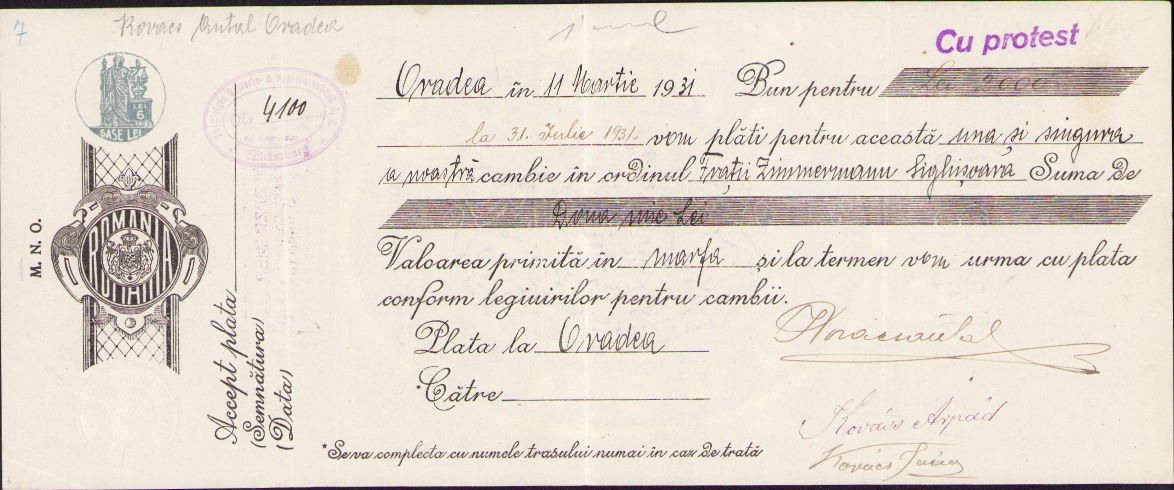 7
Kovacs Antal Oradea
Cu protest
LEI 6
SASE LEI
4100
Oradea în 11 Martie 1931 Bun pentru Lei 2000
la 31. Iulie 1931. vom plăti pentru această una și singura
a noastră cambie în ordinul Frații Zimmermann Sighișoara Suma de
Doua mie Lei
Valoarea primită în marfa și la termen vom urma cu plata
conform legiuirilor pentru cambii.
Plata la Oradea
*Către
M. N. O.
ROMANIA
Accept plata
(Semnătura)
(Data)
Kovács Árpád
Kovács
*Se va complecta cu numele trasului numai în caz de trată